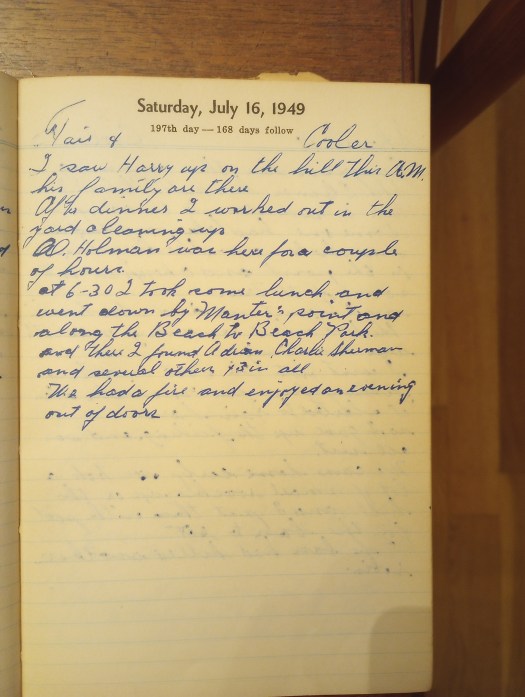 Saturday, July 16, 1949
197th day — 168 days follow
Fair & Cooler
I saw Harry up on the hill this A.M.
his family are there
Aft dinner I worked out in the
yard cleaning up
Holman was here for a couple
of hours
at 6-30 I took some lunch and
went down by Manter's point and
along the Beach to Beach Park.
and there I found Adrian, Charlie Sherman
and several others 13 in all
We had a fire and enjoyed an evening
out of doors